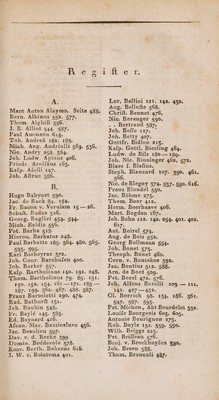 Register.
A.
Marc Anton Alaymo. Seite 488.
Bern. Albinus 552. 577.
Thom. Alghisi 598.
J. B. Alliot 544. 587.
Paul Ammann 615.
Tob. Andreä 182. 185.
Mich. Ang. Andriolli 569. 576.
Nic. Andry 252. 584.
Joh. Ludw. Apinus 406.
Friedr. Arcisäus 165.
Kasp. Aselli 147.
Joh. Astruc 586.
B.
Hugo Babynet 590.
Jac. de Back 82. 161.
Fr. Bacon v. Verulam 15 — 26.
Sebast. Badus 516.
Georg. Baglivi 454. 544.
Miah. Baldit 556.
Pet. Barba 513.
Hieron. Barbatus 248.
Paul Barbette 195. 564. 480. 565.
595. 605.
Karl Barbeyrac 572.
Joh. Conr. Barchusen 400.
Joh. Barker
Kasp. Bartholinus 140. 191. 248.
Thom. Bartholinus 79. 85. 151.
150. 152. 154. 161 — 171. 185 —
187. 199. 364. 487. 488. 587.
Franz Bartoletti 290. 474.
Rud. Bathurst 191.
Joh. Bauhin 548.
Fr. Bayle 145. 585.
Ed. Baynard 426.
Afcan. Mar. Bazzicaluve 456.
Jac. Beaulieu 597.
Dav. v. d. Becke 399.
Domin. Beddevole 578.
Konr. Barth. Behrens 616
J. W. v. Beintema 401.
Lor. Bellini 121. 142. 452.
Aug. Belloste 568.
Christ. Bennet 476.
Nic. Berenger 590.
- - Bertrand 587.
Joh. Betts 127.
Joh. Betty 407.
Gottfr. Bidloo 215.
Kasp. Gottl. Bierling 464.
Ludw. de Bils 180 — 189.
Joh. Nic. Binninger 462. 572.
Blaes s. Blasius.
Steph. Blancard 127. 390. 461.
566.
Nic. de Blegny 374. 557. 590. 616.
Franz Blondel 590.
Jac. Böhme 275.
Thom. Boer 414.
Herm. Boerhaave 406.
Mart. Bogdan 167.
Joh. Bohn 112. 141. 234. 401. 402.
617.
Ant. Boirel 572.
Aug. de Boix 552.
Georg Bollmann 554.
Joh. Bonet 575.
Theoph. Bonet 461.
Corn. v. Bontekoe 391.
Jac. Bontius 411. 588.
Arn. de Boot 509.
Pet. Borel 272.
Joh. Alfons Borelli 109 — 111.
141. 427 — 451.
Ol. Borrich 56. 154. 186. 361.
547. 557. 595.
Pet. Michon, Abt Bourdelot 351.
Louise Bourgeois 605. 605.
Antonie Bourignon 275.
Rob. Boyle 191. 359. 550.
Wilh. Briggs 225.
Pet. Brisseau 576.
Benj. v. Broekhuyzen 590.
Joh. Brown 588.
Thom. Brownlli 487.